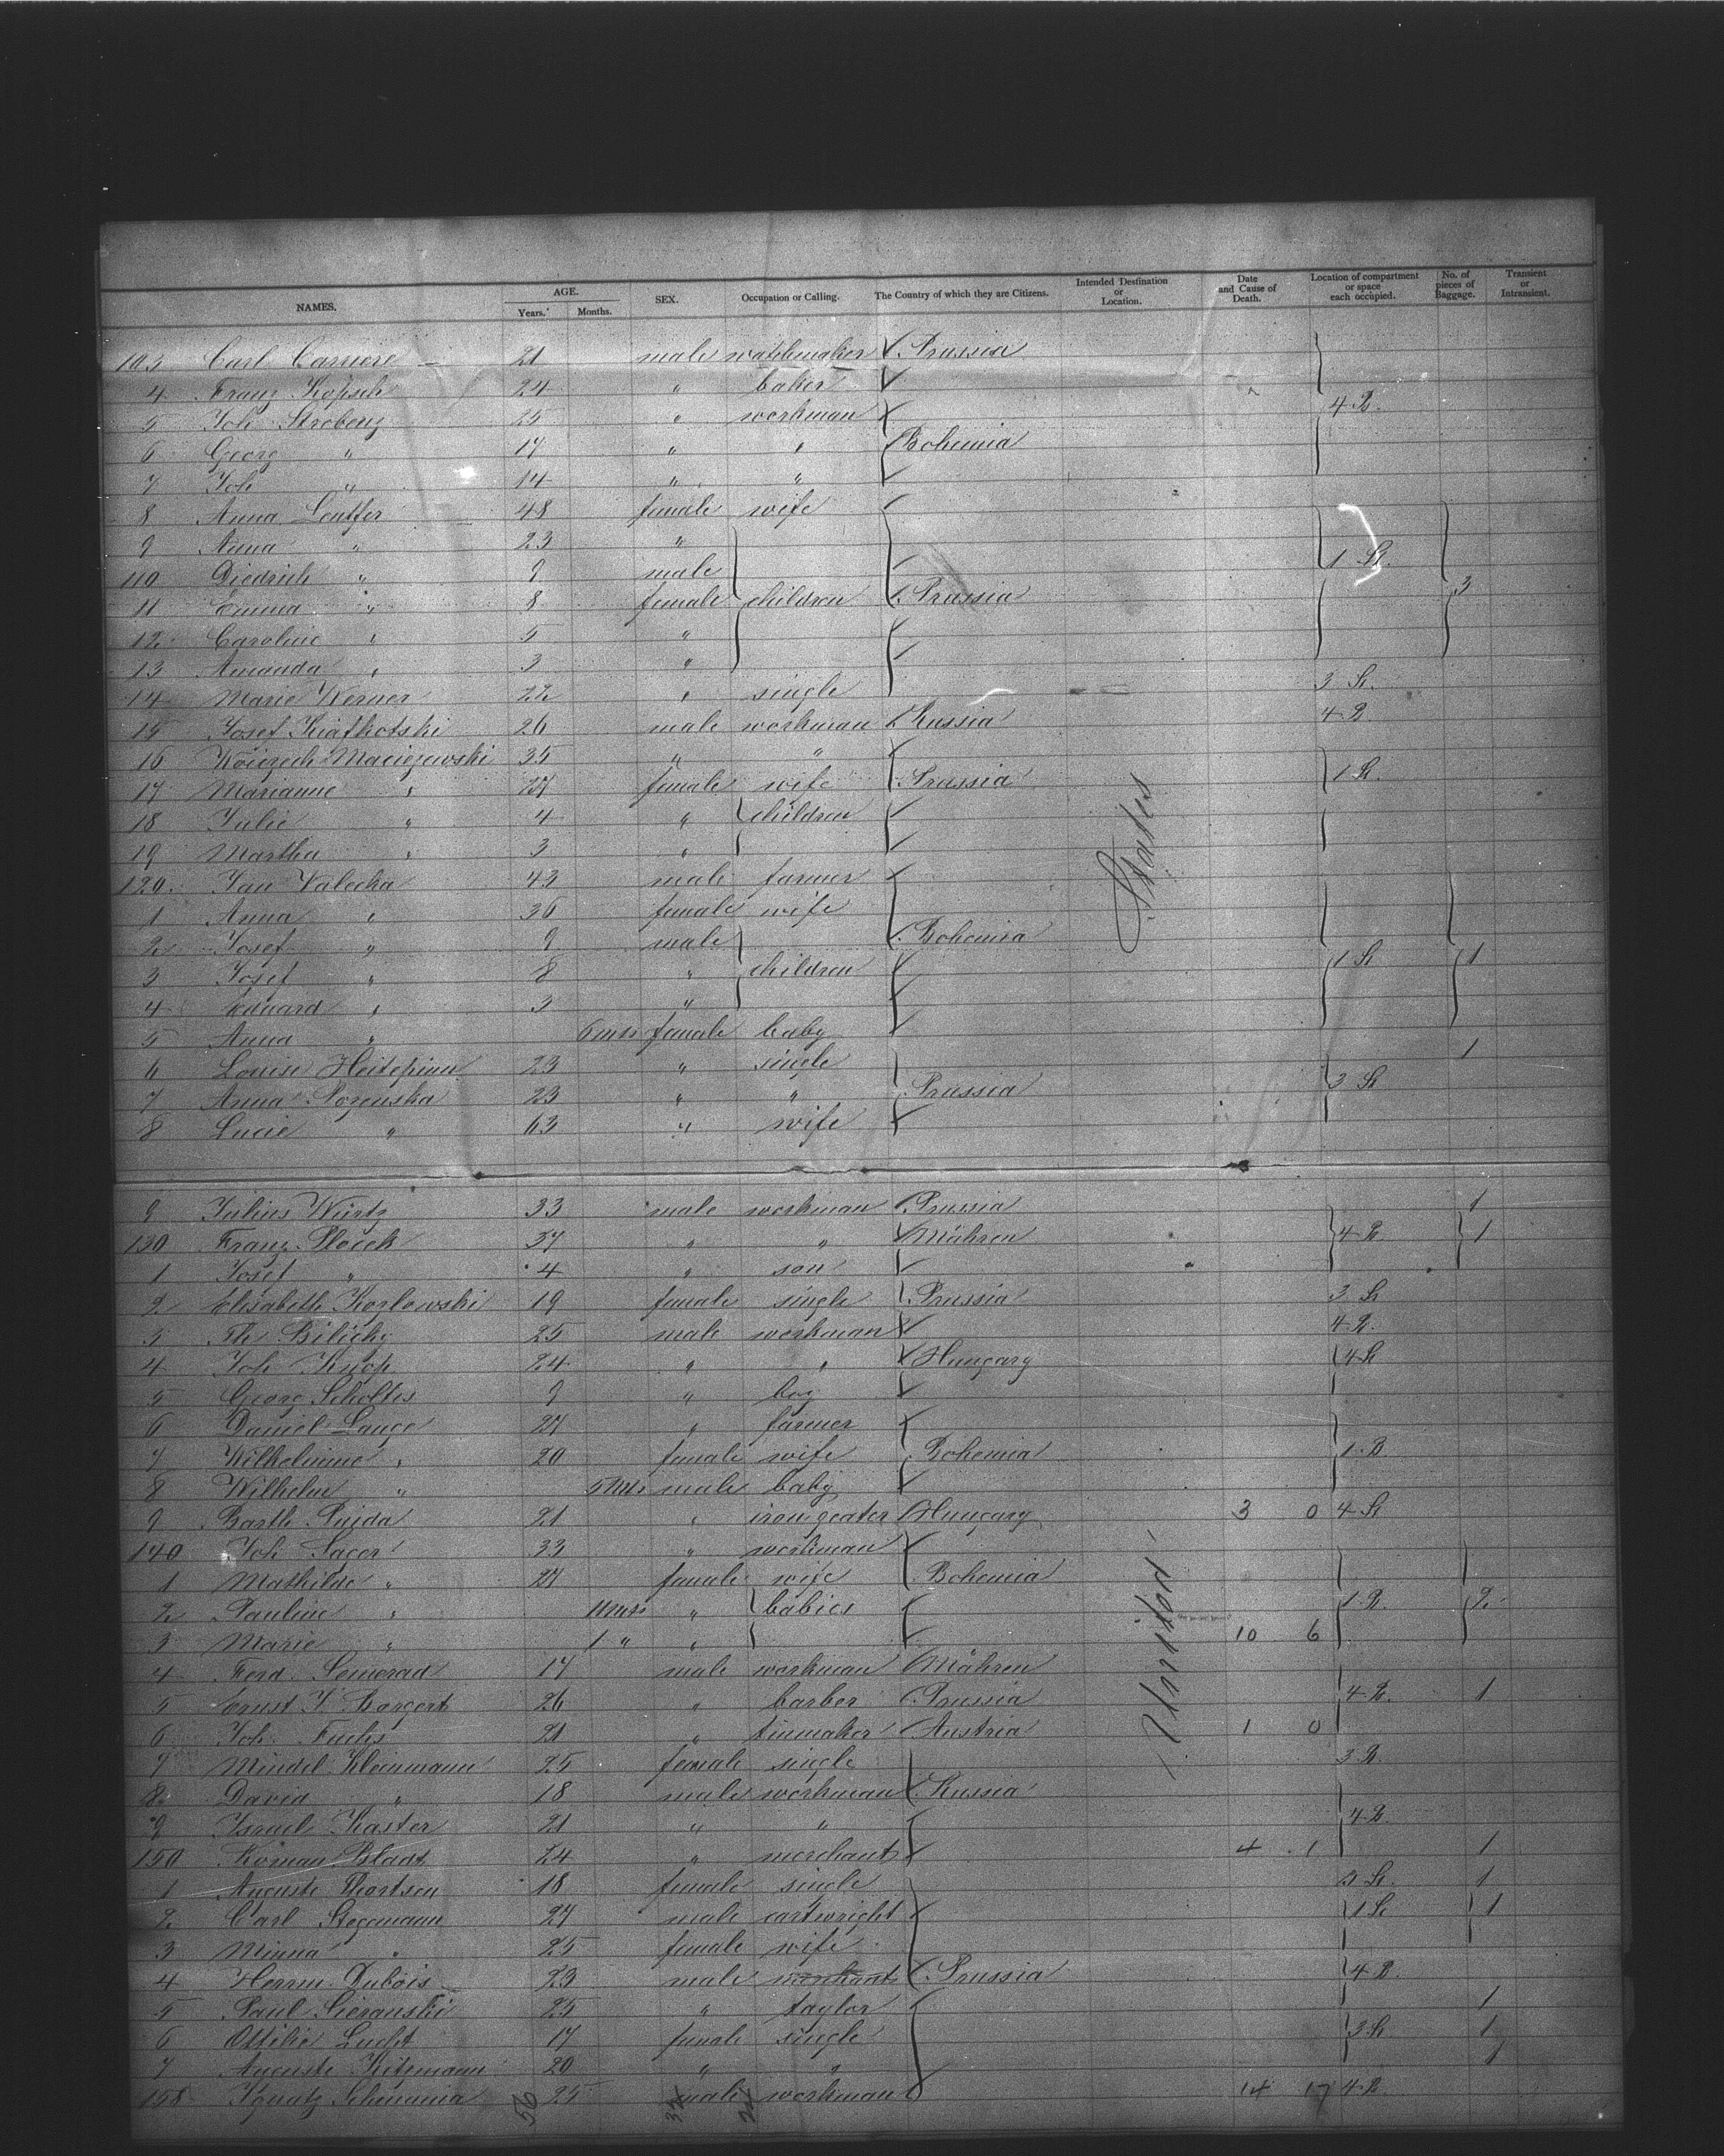 NAMES. AGE. Years. Months. SEX. Occupation or Calling. The Country of which they are Citizens. Intended Destination or Location. Date and Cause of Death. Location of compartment or space each occupied. No. of pieces of Baggage. Transient or Intransient.
103 Carl Carriere 21 male watchmaker Prussia
4 Franz Kopsch 24 " baker
5 Joh Strobenz 25 " workman 4 R.
6 Georg " 17 " " Bohemia
7 Joh " 14 " "
8 Anna Leutfer 48 female wife
9 Anna " 23 "
110 Diedrich " 9 male 1 St.
11 Emma " 8 female children Prussia 3
12 Caroline " 5 "
13 Amanda " 3 "
14 Marie Werner 22 " single 3 St.
15 Josef 26 male workman Russia 4 R
16 Maciejewski 35 " "
17 Marianne " 27 female wife Prussia 1 St.
18 Julie " 4 " children
19 Martha " 3 "
120. Jan Valecka 43 male farmer
1 Anna " 36 female wife
2 Josef " 9 male Bohemia
3 Josef " 8 " children 1 St 1
4 Eduard " 3 "
5 Anna " 6 mts female baby
6 Louise 23 " single 1
7 Anna 23 " " Prussia 3 St
8 Lucie " 63 " wife
States
9 Julius Würtz 33 male workman Prussia 1
130 Franz Plocek 37 " " Mähren 4 R 1
1 Josef " 4 " son
2 Elisabeth Korlowski 19 female single Prussia 3 St
3 Th Bilicky 25 male workman 4 R.
4 Joh Knop 24 " " Hungary 4 St
5 Georg Scholtis 9 " boy
6 Daniel Lange 27 " farmer
7 Wilhelmine " 20 female wife Bohemia 1 R
8 Wilhelm " 5 Mts male baby
9 Barth 21 " Hungary 3 0 4 St
140 Joh Sager 33 " workman
1 Mathilde " 27 female wife Bohemia
2 Pauline " 11 mts " babies 1 R. 2
3 Marie " 1 " " 10 6
4 Ferd. Semerad 17 male workman Mähren
5 Ernst F. Borgert 26 " barber Prussia 4 R. 1
6 Joh. Fuchs 21 " tinmaker Austria 1 0
7 Mindel Kleinmann 25 female single 3 R
8 David " 18 male workman Russia
9 Israel Kaster 21 " " 4 R.
150 Roman Bladt 24 " merchant 4 1 1
1 Auguste 18 female single 3 St. 1
2 Carl Stegemann 27 male cartwright 1 St 1
3 Minna " 25 female wife
4 Herm. Dubois 23 male merchant Prussia 4 R.
5 Paul Gieranski 25 " taylor 1
6 Ottilie Lucht 17 female single 3 St 1
7 Auguste Kitzmann 20 " " 1
158 Ignatz 25 male workman 14 17 4 R
United
56